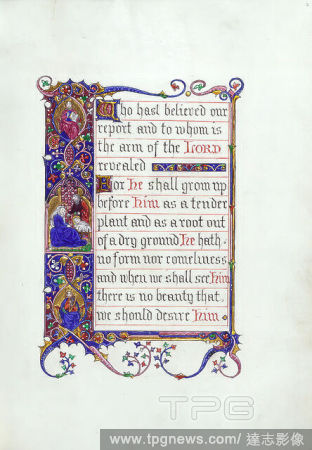 Who hast believed our
report and to whom is
the arm of the LORD
revealed
For He shall grow up
before Him as a tender
plant and as a root out
of a dry ground He hath
no form nor comeliness
and when we shall see Him
there is no beauty that
we should desire Him
TPG
www.tpgnews.com/達志影像